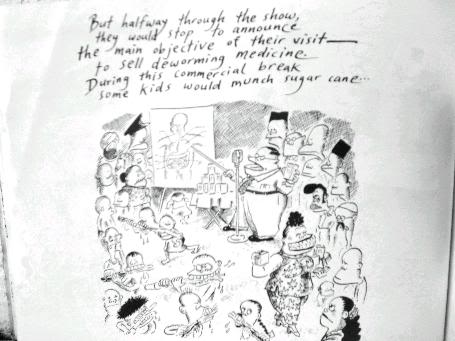 But halfway through the show,
they would stop to announce
the main objective of their visit—
to sell deworming medicine.
During this commercial break
some kids would munch sugar cane...